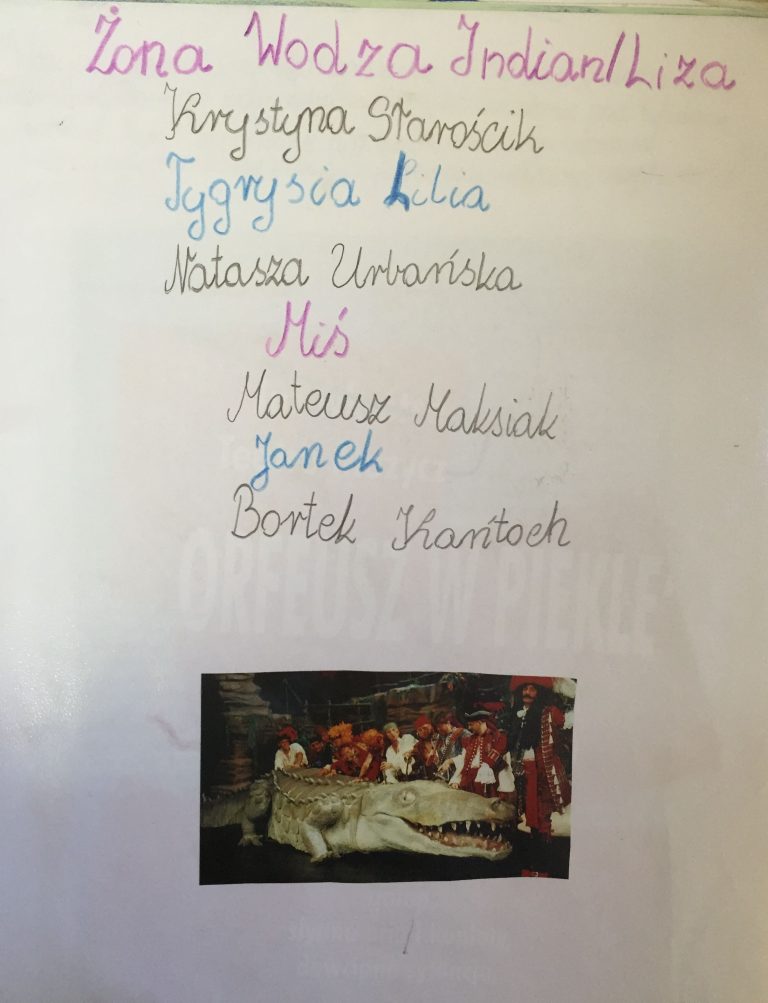 Żona Wodza Indian/Liza
Krystyna Starościk
Tygrysia Lilia
Natasza Urbańska
Miś
Mateusz Maksiak
Janek
Bortek Kańtoch
ORFEUSZ W PIEKLE